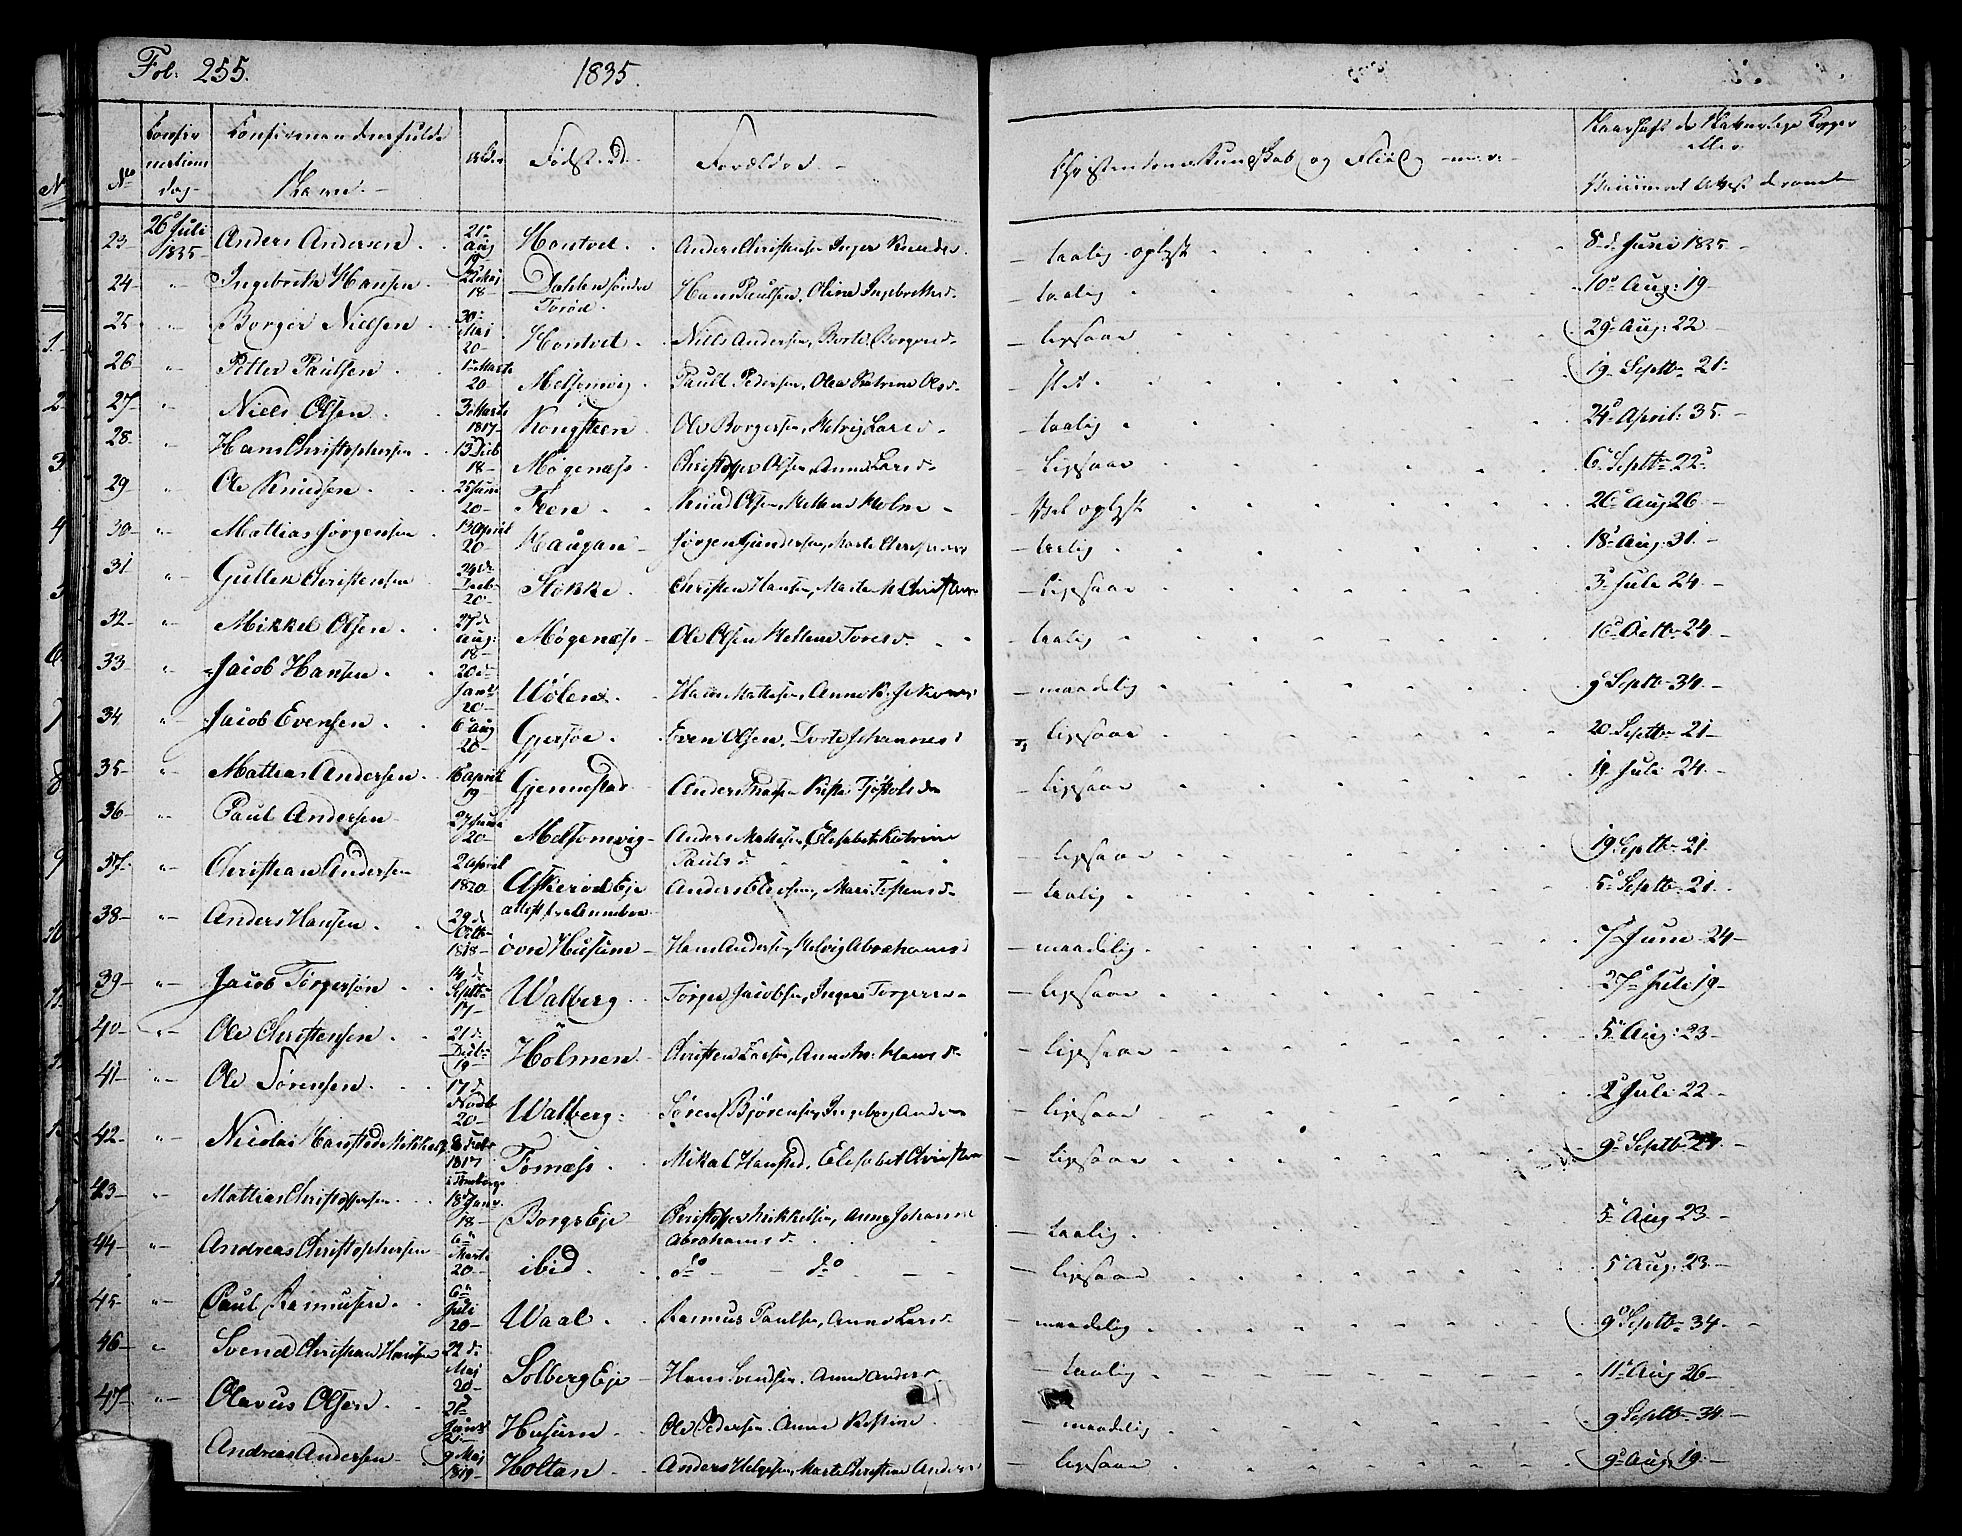 Fol: 255.
1835.
No
Confirmations dag
Confirmandens fulde Navn.
Alder
Fødsted.
Forældre.
Christendoms Kundskab og Fliid
23 26d Juli 1835 Anders Andersen 21de Aug 19 Hontvet Anders Christensen Inger Knudsd. taalig oplyst 8d Juni 1835
24 " Ingebrekt Hansen 22 Maj 18 Dahlen søndre Torød Hans Paulsen, Oline Ingebrektsd. taalig 10d Aug: 19
25 " Borger Nielsen 30 Maj 20 Hontvet Niels Andersen, Borte Borgersd. ligesaa 29d Aug: 22
26 " Petter Paulsen 1 Marts 20 Melsomvig Paul Pedersen, Olea Katrine Olsd. slet 19 Septbr 21
27 " Niels Olsen 3 Marts 1817 Kongsteen Ole Borgersen, Helvig Larsd. taalig 24d April: 35
28 " Hans Christophersen 13 Deb 18 Møgenæss Christopher Olsen, Anne Larsd. Ligesaa 6d Septbr 22
29 " Ole Knudsen 25 Juni 20 Feen Knud Olsen, Hellene Holm vel oplyst 26d Aug 26
30 " Mattias Jørgensen 13 April 20 Haugan Jørgen Gundersen, Marte taalig 18d Aug: 31
31 " Gullek Christensen 24d Febr 20 Stokke Christen Hansen, Marte M Christens Ligesaa 3d Juli 24
32 " Mikkel Olsen 27d Aug: 18 Møgenæss Ole Olsen Hellene Toresd. taalig 16d Octbr 24
33 " Jacob Hansen 20d Janv 20 Wølen Hans Mattesen, Anne K. maadelig 9d Septbr 34
34 " Jacob Evensen 6d Aug 20 Gjersøe Even Olsen, Dorte Johannesd ligesaa 20 Septbr 21
35 " Mattias Andersen 16 April 19 Gjennestad Anders ligesaa 19 Juli 24
36 " Paul Andersen 27 Juni 20 Melsomvig Anders Mattesen, Elisabet Katrine Paulsd. ligesaa 19 Septbr 21
37 " Christian Andersen 2 April 1820 Askerød Eje Anders Ellevsen, Mari taalig 5d Septbr 21
38 " Anders Hansen 29d Octbr 1818 øvre Husum Hans Andersen, Helvig Abrahamsd maadelig 7d Juni 24
39 " Jacob Torgersøn 14d Septbr 17 Walberg Torger Jacobsen, Ingeri Torgersd. ligesaa 27d Juli 19
40 " Ole Christensen 21d Decbr 19 Holmen Christen Larsen, Anne M: Hansd. ligesaa 5d Aug: 23
41 " Ole Sørensen 17d Novbr 20 Walberg Søren Bjørensen, Ingeborg Andersd ligesaa 2d Juli 22
42 " Nicolai Hansted Mikkels. 8 Febr 1817 i Tønsberg Tomæss Mikal Hansted, Elisabet Christens ligesaa 9d Septbr
43 " Mattias Christoffersen 18d Janv 18 Borge Eje Christoffer Mikkelsen, Anne Johanne Abrahamsd. taalig 5d Aug 23
44 " Andreas Christophersen 6d Marts 20 ibid do do ligesaa 5 Aug: 23
45 " Paul Rasmusen 6d Juli 20 Waal Rasmus Paulsen, Anne Larsd. maadelig 9d Septbr 34
46 " Svend Christian Hansen 22d Maj 20 Solberg Eje Hans Svendsen, Anne Andersd. taalig 11d Aug 26
47 " Olavus Olsen 21d Janv Husum Ole Pedersen Anne Kirstine maadelig 9 Septbr 34
Andreas Andersen 9 Maj 1819 Holtan Anders Helgesen, Marte Christine Anders ligesaa 9d Aug 19